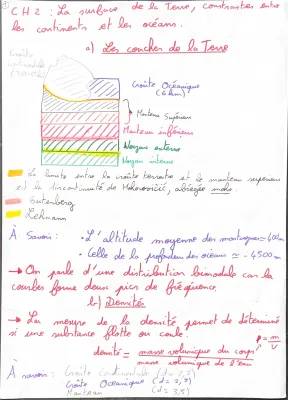 CH 2 : La surface de la Terre, contrastes entre
les continents et les océans.
a) Les couches de la Terre
Croûte
continentale
Croûte Océanique
(6 km)
Manteau Supérieur
Manteau inférieur
Noyau externe
Noyau interne
La limite entre la croûte terrestre et le manteau supérieur
la discontinuité de Mohorovičić, abrégée moho
Gutenberg
Lehmann
À Savoir : • L'altitude moyenne des montagnes
• Celle de la profondeur des océans ≈ -4500m
→ On parle d'une distribution bimodale car la
courbe forme deux pics de fréquence.
b) Densités
→ La mesure de la densité permet de déterminé
si une substance flotte ou coule.
ρ = m/V
densité = masse volumique du corps
masse volumique de l'eau
À savoir : Croûte continentale (d = 2,7)
Croûte Océanique (d = 2,9)
Manteau (d = 3,3)